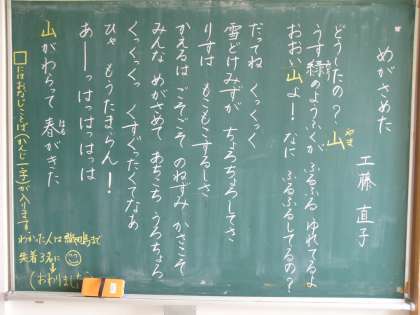 めがさめた
工藤 直子
どうしたの? 山
やま
うす緑のようふくが ふるふる ゆれてるよ
おおい山よー! なに ふるふるしてるの?
だってね くっくっく
雪どけみずが ちょろちょろしてさ
りすは もこもこするしさ
かえるは ごそごそ のねずみ かさこそ
みんな めがさめて あちこち うろちょろ
くっくっくっ くすぐったくてなあ
ひゃ もうたまらん!
あーっはっはっはっは
山がわらって 春がきた
はる
□にはおなじことば(かんじ一字)が入ります
わかった人は まで
先着3名に
(おわりました)